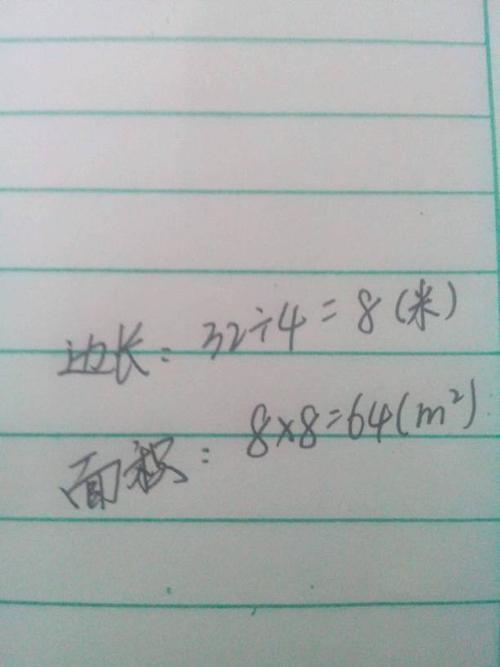 边长：32÷4=8(米)
面积：8×8=64(m²)